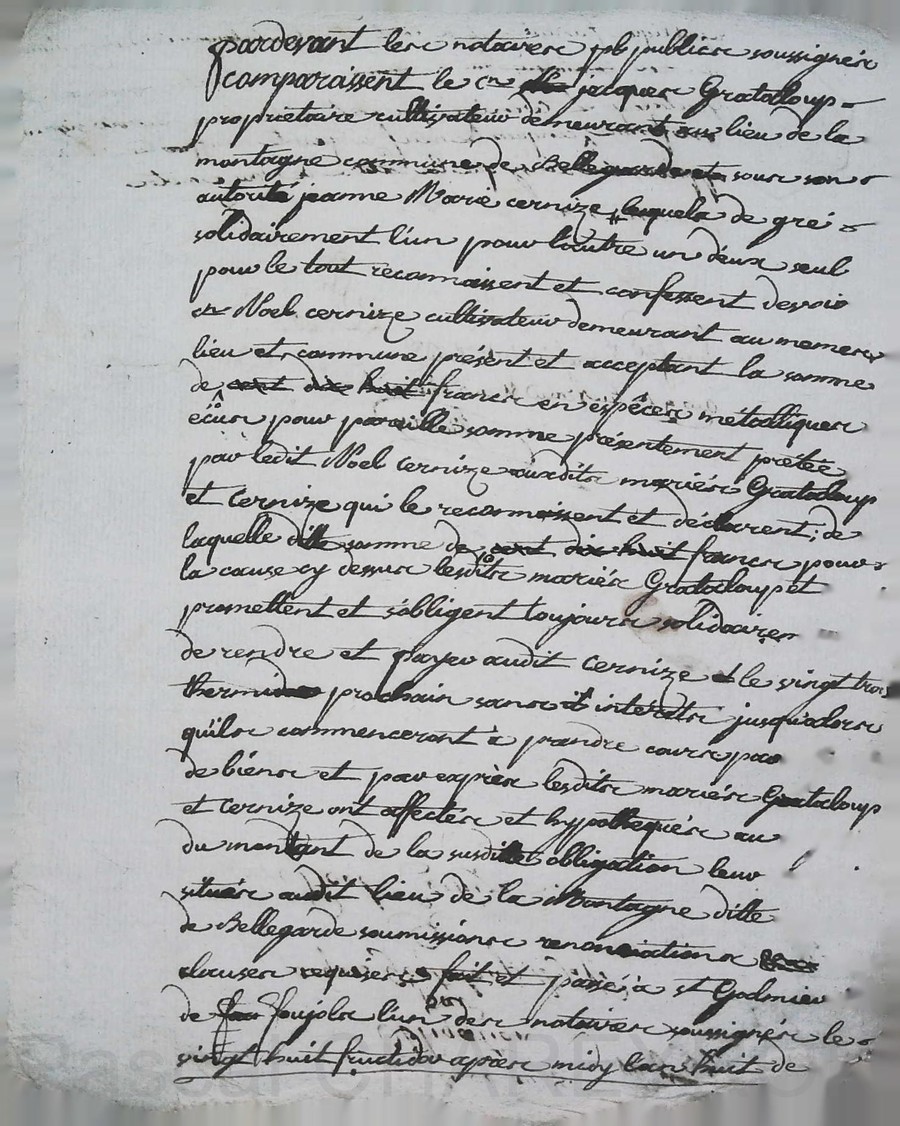 pardevant les notaires pb publics soussignés
comparaissent le cn jacques Grataloup
proprietaire cultivateur demeurant au lieu de la
montagne commune de Bellegarde et sous son
autorité jeanne Marie cernize lesquels de gré
solidairement l'un pour l'autre un deux seul
pour le tout reconnaissent et confessent devoir
cn Noel cernize cultivateur demeurant au memes
lieu et commune présent et acceptant la somme
de cent dix huit francs en espêces métalliques
écus pour pareille somme présentement prétée
par ledit Noel cernize auxdits mariés Grataloup
et Cernize qui le reconnaissent et déclarent; de
laquelle ditte somme de cent dix huit francs pour
la cause cy dessus lesdits mariés Grataloup et
promettent et s'obligent toujours solidairem
de rendre et payer audit Cernize le vingt trois
thermidor prochain sans interets jusqu'alors
qu'ils commenceront à prandre cours par
de biens et par exprès lesdits mariés Grataloup
et cernize ont affectés et hypothequés au
du montant de la susditte obligation leur
situés audit lieu de la Montagne ditte
de Bellegarde soumissions renonciations
clauses requises fait et passé a st Galmier
de foujols l'un des notaires soussignés le
vingt huit fructidor après midy l'an huit de